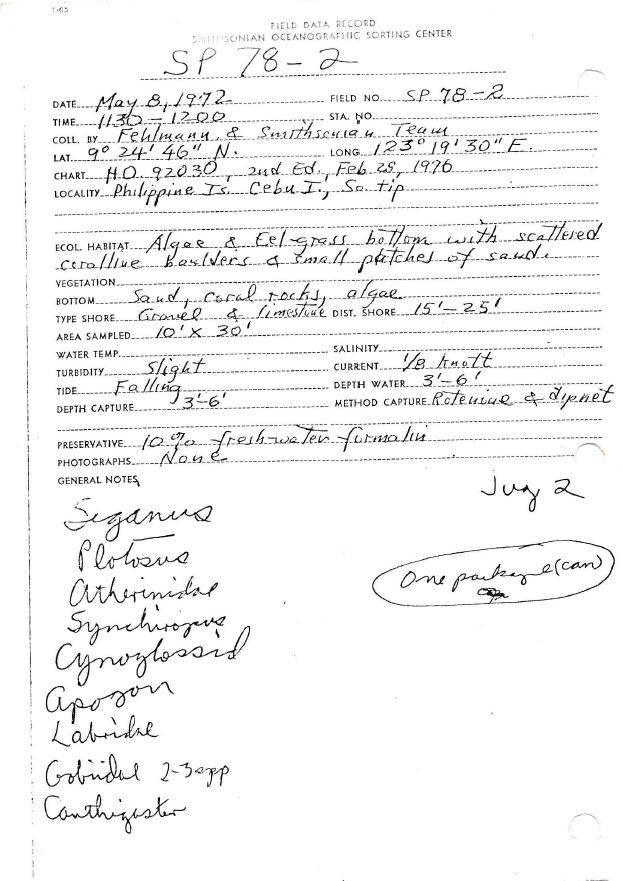 7-65
FIELD DATA RECORD
SMITHSONIAN OCEANOGRAPHIC SORTING CENTER
SP 78-2
DATE May 8, 1972 FIELD NO. SP 78-2
TIME 1130-1200 STA. NO.
COLL. BY Fehlmann & Smithsonian Team
LAT. 9° 24' 46" N. LONG. 123° 19' 30" E
CHART H.O. 92030, 2nd Ed., Feb 25, 1976
LOCALITY Philippine Is. Cebu I., So. tip
ECOL. HABITAT Algae & Eel-grass bottom with scattered
coralline boulders & small patches of sand.
VEGETATION
BOTTOM Sand, coral rocks, algae
TYPE SHORE Gravel & limestone DIST. SHORE 15'-25'
AREA SAMPLED 10' X 30'
WATER TEMP. SALINITY
TURBIDITY Slight CURRENT 1/8 Knott
TIDE Falling DEPTH WATER 3'-6'
DEPTH CAPTURE 3'-6' METHOD CAPTURE Rotenine & dipnet
PRESERVATIVE 10% freshwater formalin
PHOTOGRAPHS None
GENERAL NOTES
Jug 2
Siganus
Plotosus
One package (can)
Atherinidae
Synchiropus
Cynoglossid
Apogon
Labridae
Gobiidae 2-3 spp
Canthigaster